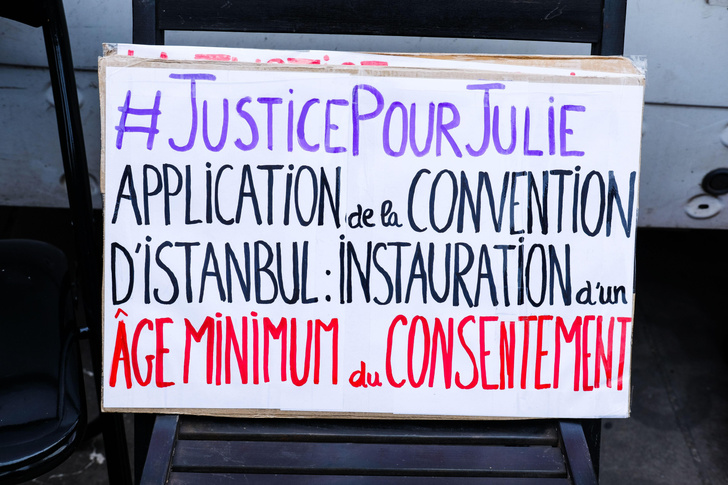 #JUSTiCEPOURJULiE
APPLiCATiON de la CONVENTiON
D'iSTANBUL : iNSTAURATiON d'un
ÂGE MiNiMUM du CONSENTEMENT